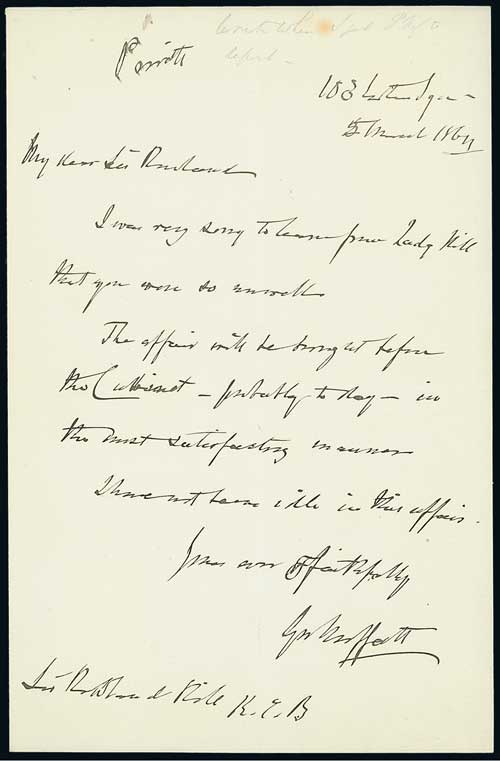 Private
103 Eaton Square
5 March 1864
My dear Sir Rowland
I was very sorry to learn from Lady Hill
that you were so unwell
The affair will be brought before
the Cabinet – probably to day – in
the most satisfactory manner
I have not been idle in this affair.
Yours ever faithfully
Geo Moffatt
Sir Rowland Hill K.C.B